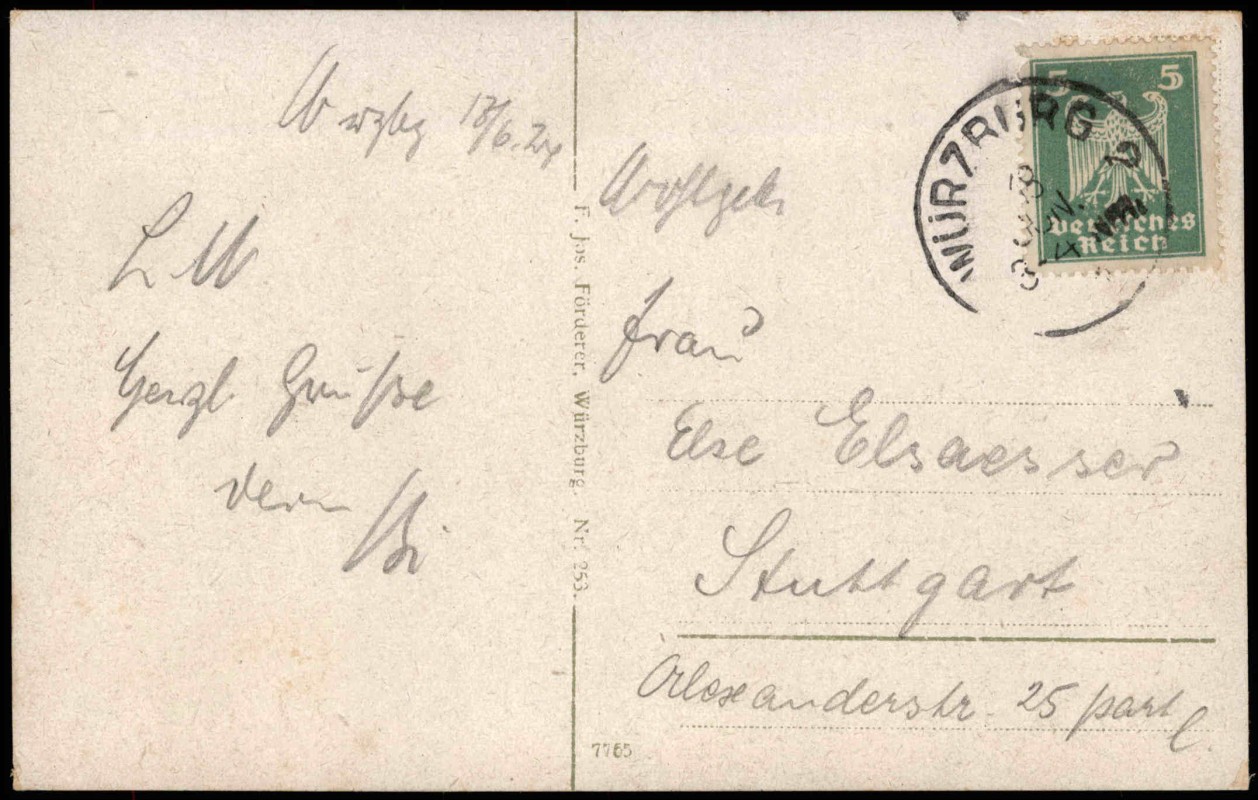 Wzbg 18/6. 24
L M.
Herzl. Grüße
dein
F. Jos. Förderer, Würzburg. Nr. 253.
WÜRZBURG 2
18 JUN.
24
5 5
Deutsches
Reich
Frau
Else Elsaesser
Stuttgart
Alexanderstr. 25 part l.
7765